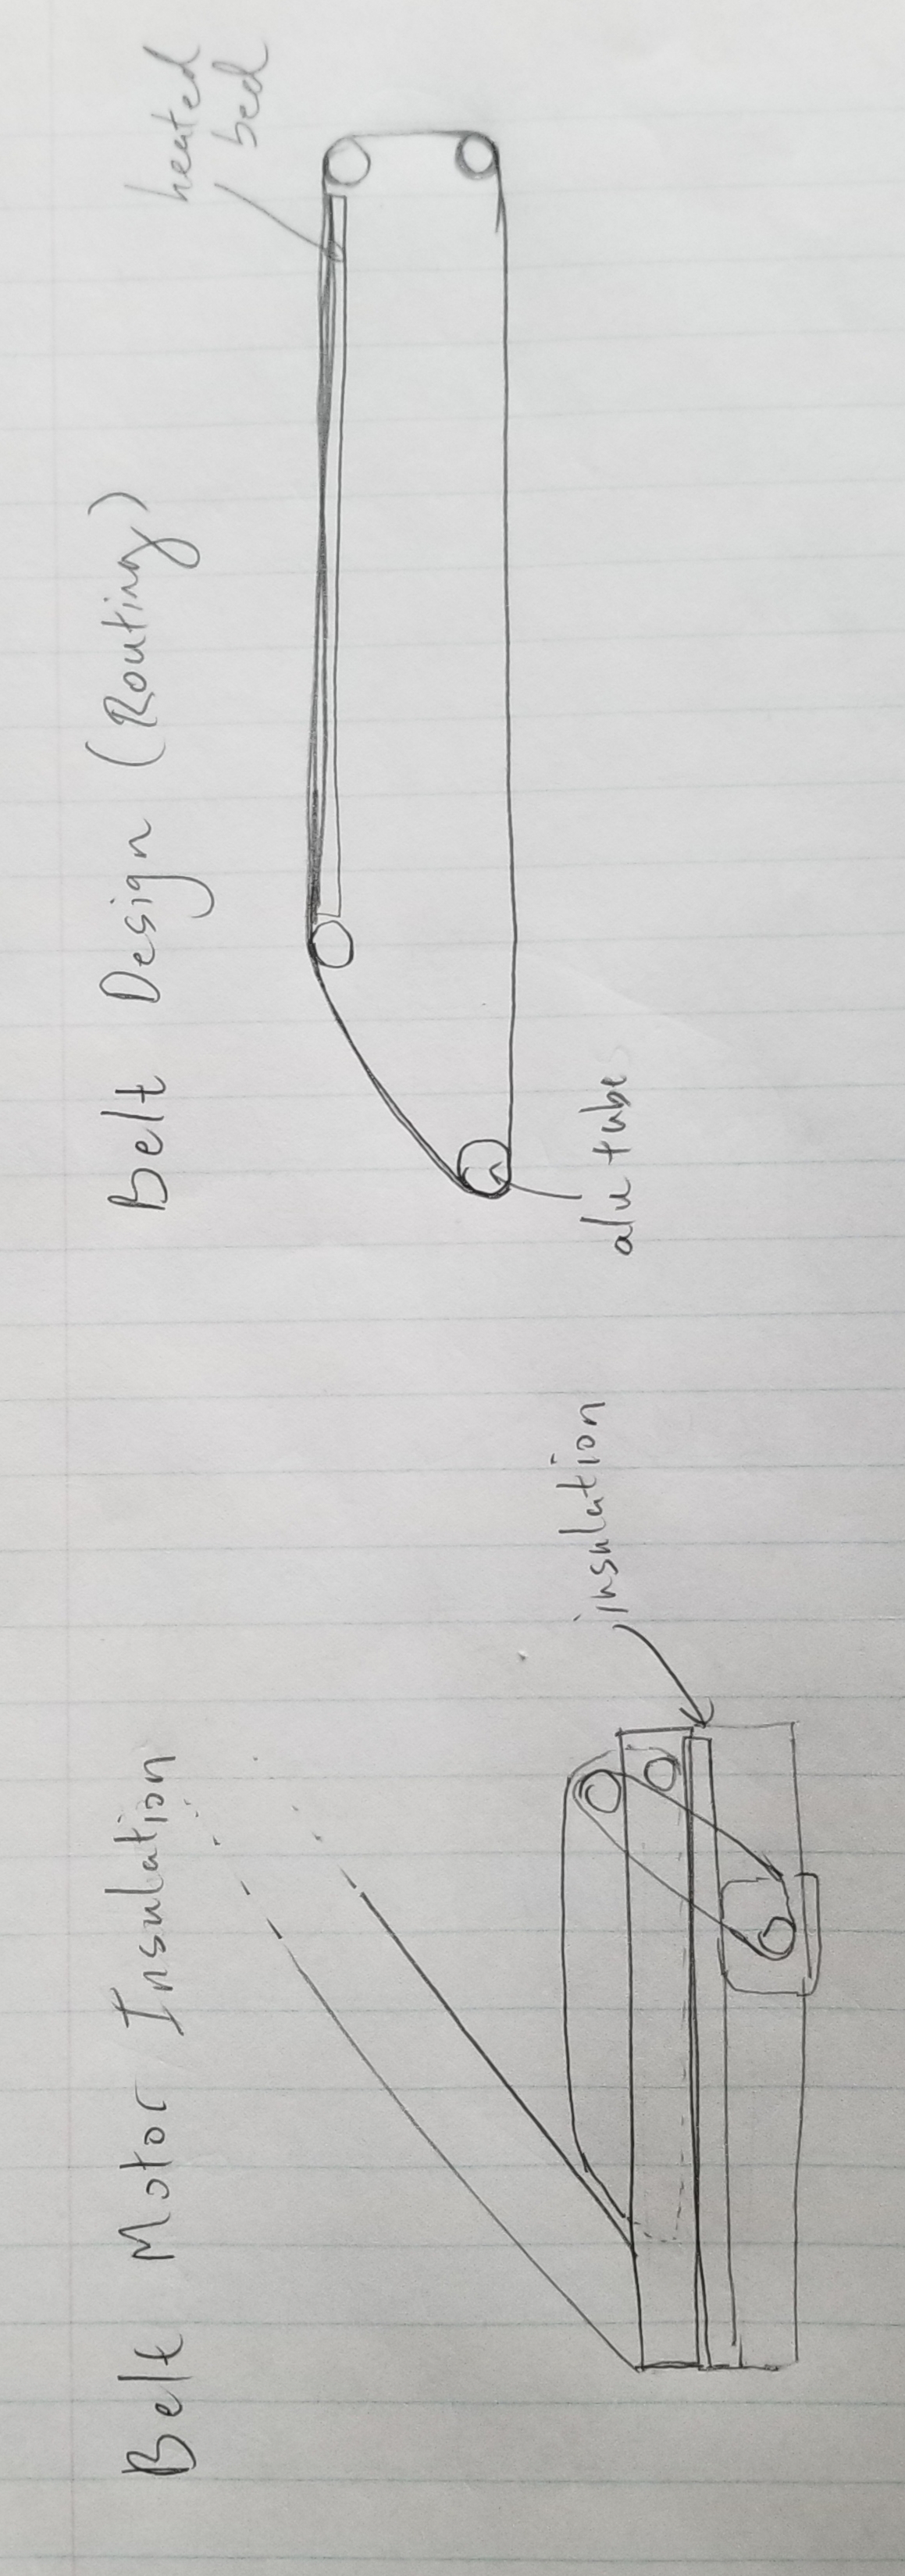 Belt Motor Insulation
insulation
Belt Design (Routing)
heated
bed
alu tube